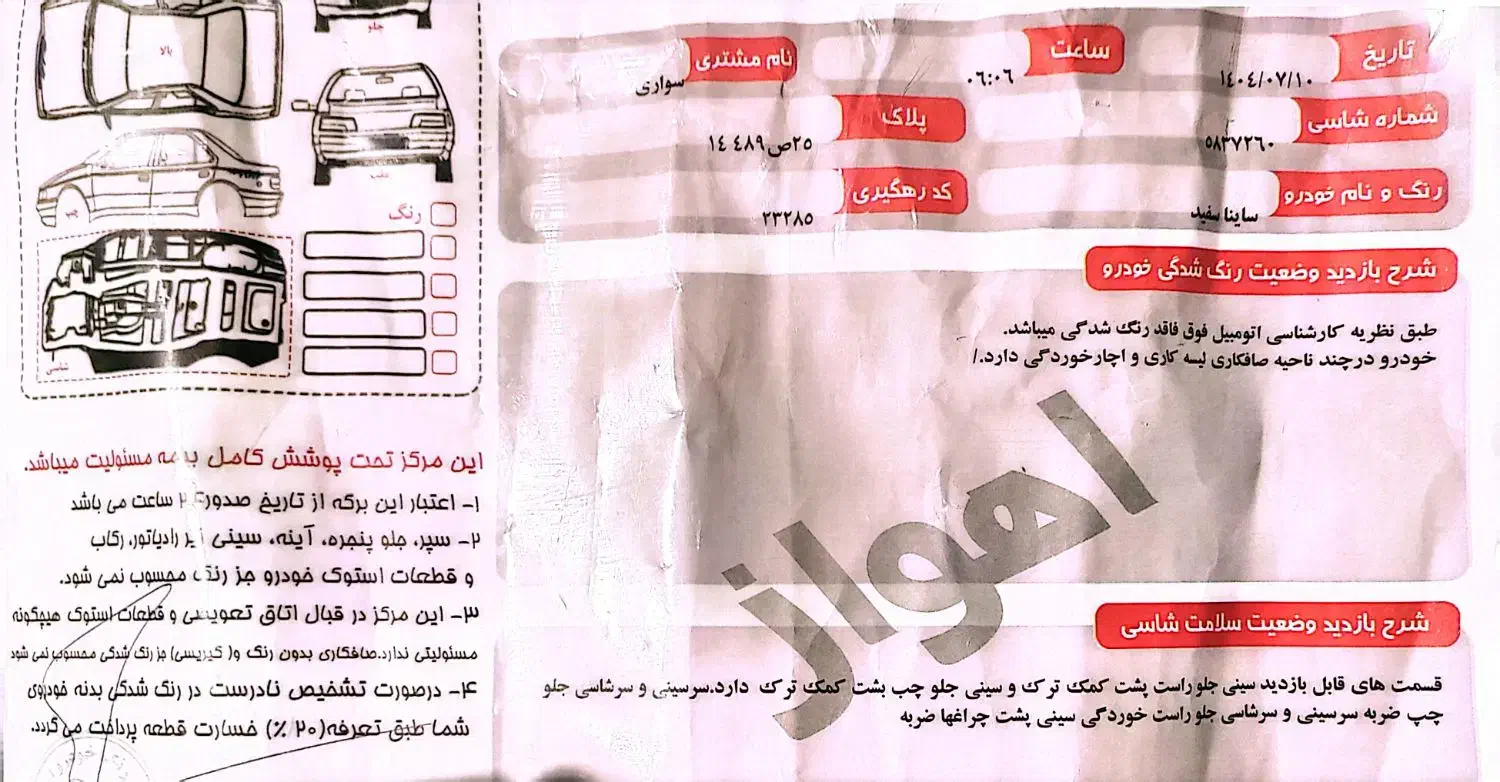 تاریخ
۱۴۰۴/۰۷/۱۰
ساعت
۰۶:۰۶
نام مشتری
سواری
شماره شاسی
۵۸۳۷۲۶۰
پلاک
۲۵ص۴۸۹ ۱۴
رنگ و نام خودرو
ساینا سفید
کد رهگیری
۲۳۲۸۵
شرح بازدید وضعیت رنگ شدگی خودرو
طبق نظریه کارشناسی اتومبیل فوق فاقد رنگ شدگی میباشد.
خودرو درچند ناحیه صافکاری لیسه کاری و اچارخوردگی دارد./
اهواز
شرح بازدید وضعیت سلامت شاسی
قسمت های قابل بازدید سینی جلو راست پشت کمک ترک و سینی جلو چپ پشت کمک ترک دارد.سرسینی و سرشاسی جلو
چپ ضربه سرسینی و سرشاسی جلو راست خوردگی سینی پشت چراغها ضربه
جلو
بالا
عقب
چپ
شاسی
رنگ
این مرکز تحت پوشش کامل بیمه مسئولیت میباشد.
۱- اعتبار این برگه از تاریخ صدور ساعت می باشد
۲- سپر، جلو پنجره، آینه، سینی زیر رادیاتور، رکاب
و قطعات استوک خودرو جز رنگ محسوب نمی شود.
۳- این مرکز در قبال اتاق تعویضی و قطعات استوک هیچگونه
مسئولیتی ندارد.صافکاری بدون رنگ و( گیریسی) جز رنگ شدگی محسوب نمی شود
۴- درصورت تشخیص نادرست در رنگ شدگی بدنه خودروی
شما طبق تعرفه(۲۰ ٪) خسارت قطعه پرداخت می گردد.